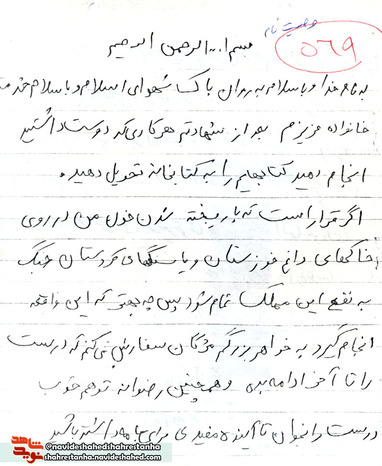 وصیت نامه
۵۶۹
بسم ا.. الرحمن الرحیم
به نام خدا و با سلام به روان پاک شهدای اسلام و با سلام خدمت
خانواده عزیزم بعد از شهادتم هر کاری که دوست داشتید
انجام دهید کتابهایم را به کتابخانه تحویل دهید.
اگر قرار است که با ریخته شدن خون من در روی
خاکهای داغ خوزستان و یا سنگهای کردستان جنگ
به نفع این مملکت تمام شود پس چه بهتر که این واقعه
انجام گیرد به خواهر بزرگم مژگان سفارش می‌کنم که درست
را تا آخر ادامه بدی و همچنین رضوانه تو هم خوب
درست را بخوان تا آینده مفیدی برای جامعه داشته باشید
نوید شاهد
@navideshahedshahrestanha
shahrestanha.navideshahed.com